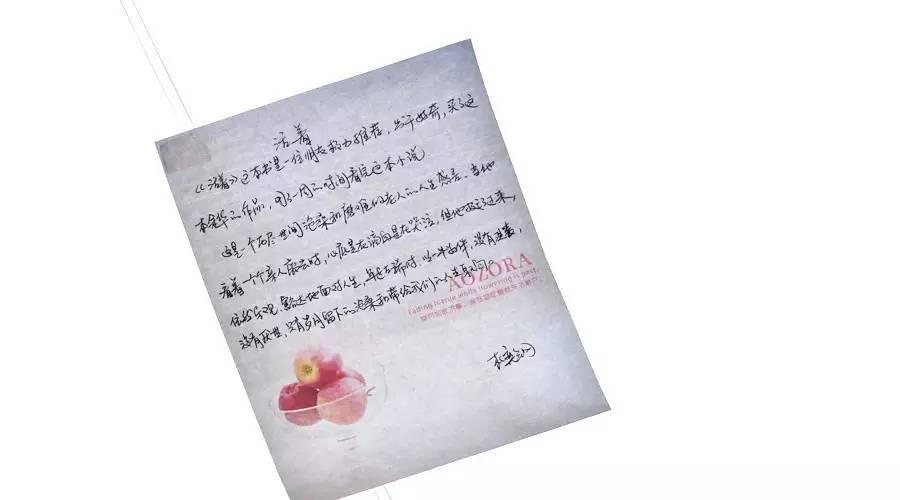 活着
《活着》这本书是一位朋友极力推荐,出于好奇,买了这
本余华的作品,用了一周的时间看完这本小说
这是一个历尽世间沧桑和磨难的老人的人生感言。当他
看着一个个亲人离去时,心底是在滴血是在哭泣,但他挺了过来,
依然乐观、豁达地面对人生,年迈古稀时,以一牛为伴,没有
没有厌世,只有岁月留下的沧桑和带给我们的人生
AOZORA
Fading is true while flowering is past.